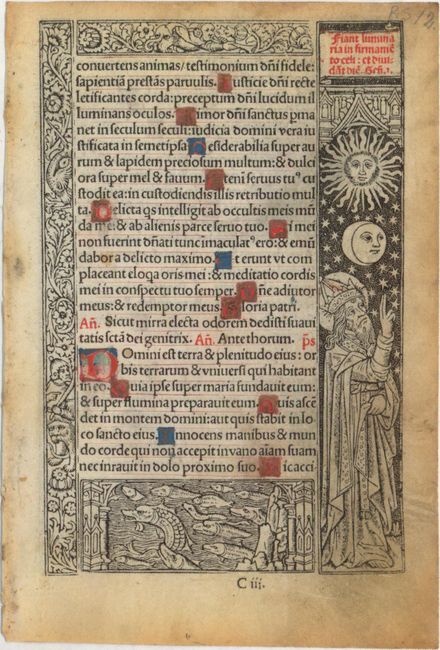 Fiant lumina
ria in firmamē
to celi: et diui
dāt diē. Gen̄.1.
convertens animas/testimonium dn̄i fidele:
sapientiā prestās paruulis. Iusticie dn̄i recte
letificantes corda: preceptum dn̄i lucidum il
luminans oculos. Timor dn̄i sanctus pma
net in seculum seculi: iudicia domini vera iu
stificata in semetipsa Desiderabilia super au
rum & lapidem preciosum multum: & dulci
ora super mel & fauum. Etenī seruus tu⁹ cu
stodit ea: in custodiendis illis retributio mul
ta. Delicta qs intelligit ab occultis meis mūn
da me: & ab alienis parce seruo tuo. Si mei
non fuerint dn̄ati tunc īmaculat⁹ ero: & emūn
dabor a delicto maximo. Et erunt vt com
placeant eloqa oris mei: & meditatio cordis
mei in conspectu tuo semper. Dn̄e adiutor
meus: & redemptor meus. Gloria patri.
Añ. Sicut mirra electa odorem dedisti suaui
tatis sctā dei genitrix. Añ. Ante thorum. p̄s
Domini est terra & plenitudo eius: or
bis terrarum & vniuersi qui habitant
in eo. Quia ipse super maria fundauit eum:
& super flumina preparauit eum. Quis ascē
det in montem domini: aut quis stabit in lo
co sancto eius. Innocens manibus & mun
do corde qui non accepit in vano aīam suam
nec inrauit in dolo proximo suo. Hic acci
C iii.